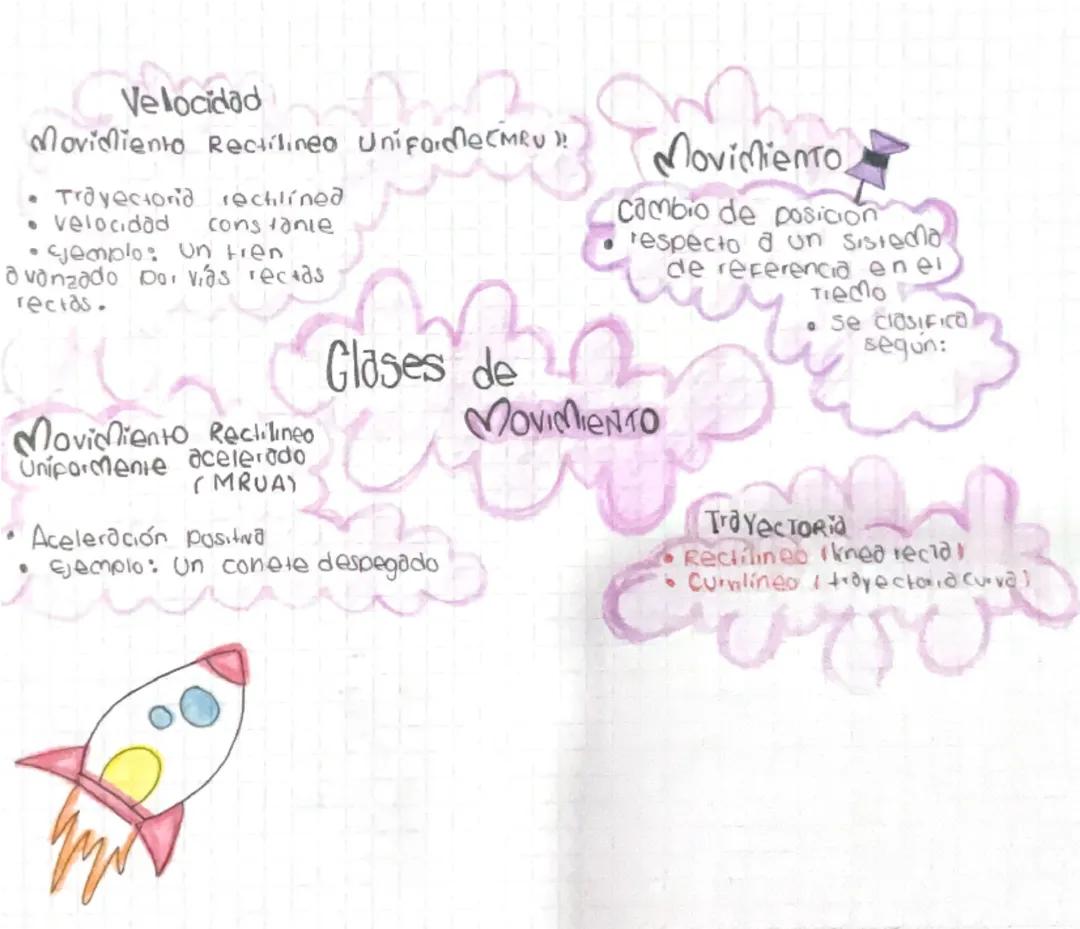 Velocidad
Movimiento Rectílineo Uniforme (MRU):
• Trayectoria rectilínea
• velocidad constante
• Ejemplo: Un tren
avanzado por vías rectas
rectas.
Movimiento
cambio de posicion
• respecto a un sistema
de referencia en el
Tiemo
• Se clasifica
según:
Clases de
Movimiento
Movimiento Rectilineo
Uniformente acelerado
(MRUA)
• Aceleración positiva
• Ejemplo: Un conete despegado
Trayectoria
• Rectílineo (linea recta)
• Curvilíneo (trayectoria curva)